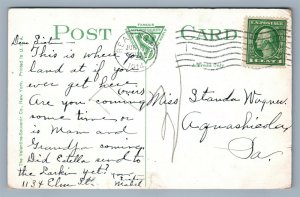 POST CARD
FAMOUS
Dear Sister
This is where you
land at if you
ever get here
(over)
Are you coming
some time, or
is Mam and
Grandpa coming.
Did Estella send to
the Larkin yet?
1134 Elm St. Mabel
Miss Standa Wagner
Aquashicola
Pa.
The Valentine-Souvenir Co., New York. Printed in U.
1 CENT 1